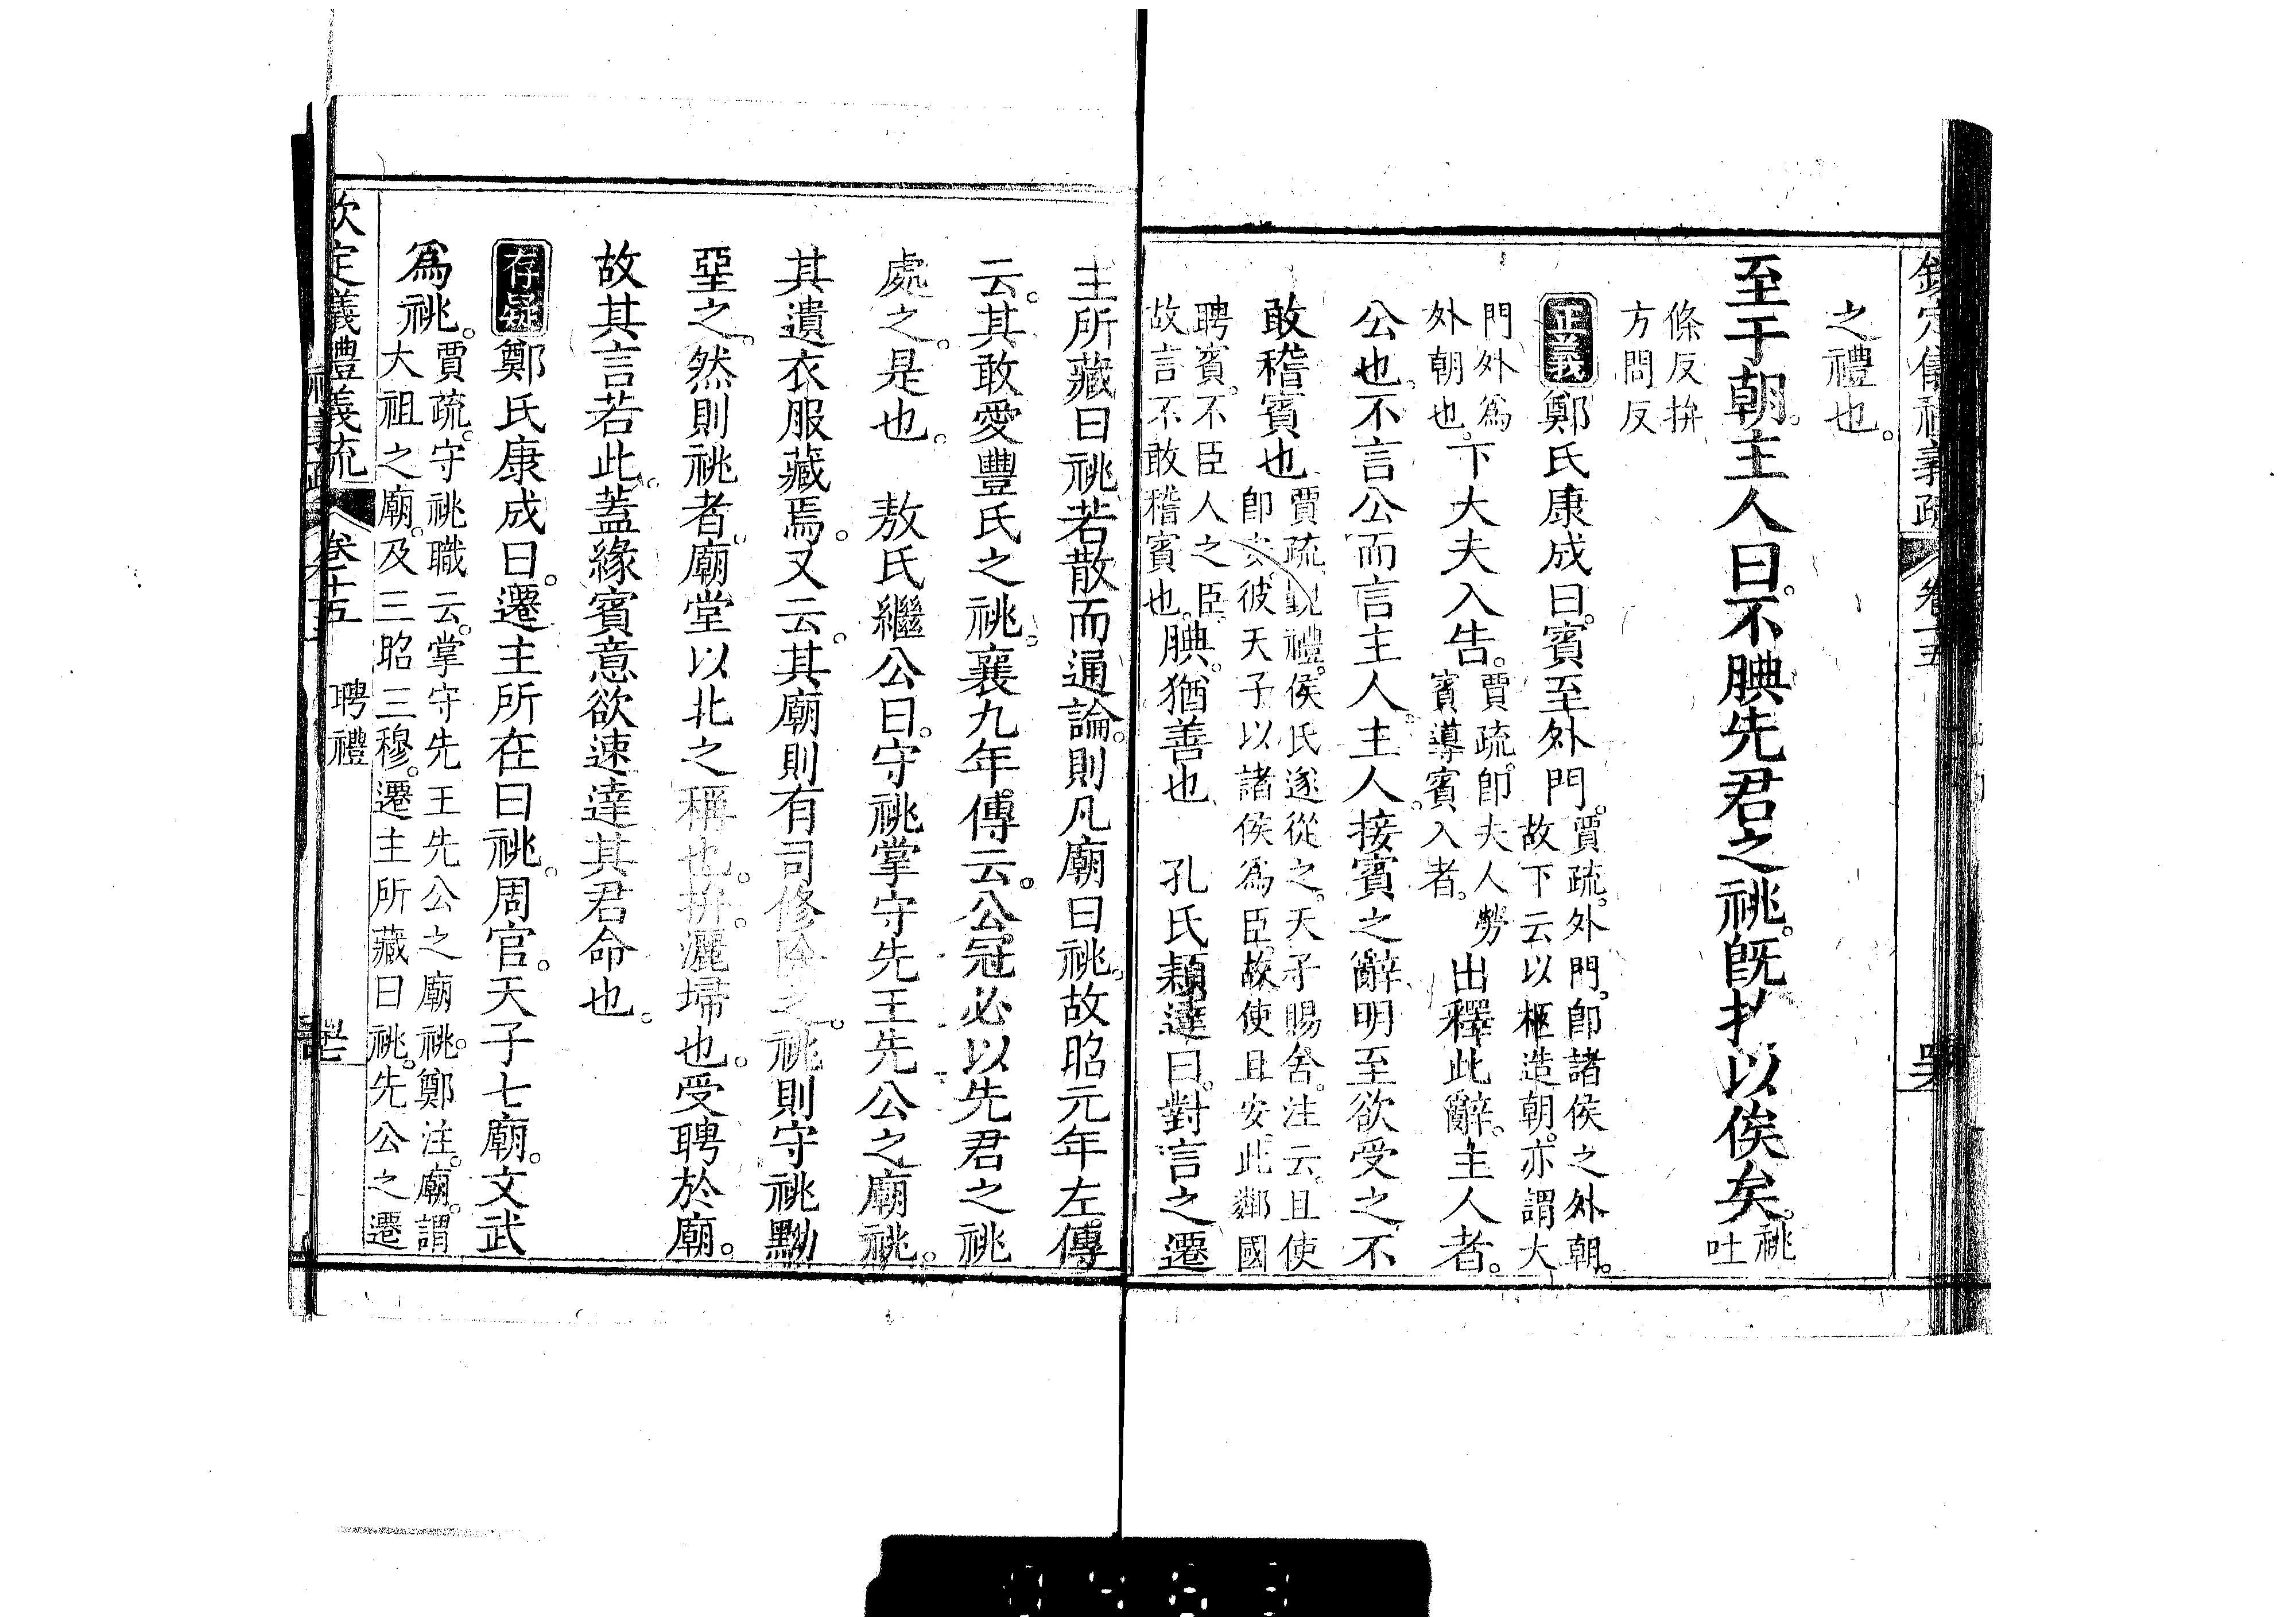 之禮也。
至于朝。主人曰。不腆先君之祧。旣拚以俟矣。祧吐
條反拚
方問反
正義鄭氏康成曰。賓至外門。賈疏。外門。卽諸侯之外朝。
故下云以柩造朝。亦謂大
門外爲
外朝也。下大夫入告。賈疏。卽夫人勞
賓導賓入者。出釋此辭。主人者。
公也。不言公而言主人。主人。接賓之辭。明至欲受之。不
敢稽賓也賈疏。覲禮。侯氏遂從之。天子賜舍。注云。且使
卽安。彼天子以諸侯爲臣。故使且安。此鄰國
聘賓。不臣人之臣。
故言不敢稽賓也。腆。猶善也 孔氏穎達曰。對言之遷
主所藏曰祧若散而通論。則凡廟曰祧。故昭元年左傳
云。其敢愛豐氏之祧。襄九年。傳云。公冠必以先君之祧
處之。是也。 敖氏繼公曰。守祧掌守先王先公之廟祧。
其遺衣服藏焉。又云。其廟則有司修除之。祧則守祧黝
堊之。然則祧者。廟堂以北之稱也。拚。灑埽也。受聘於廟。
故其言若此。蓋緣賓意欲速達其君命也。
存疑鄭氏康成曰。遷主所在曰祧。周官。天子七廟。文武
爲祧。賈疏。守祧職云。掌守先王先公之廟祧。鄭注。廟。謂
大祖之廟。及三昭三穆。遷主所藏曰祧。先公之遷
欽定儀禮義疏 卷十五 聘禮